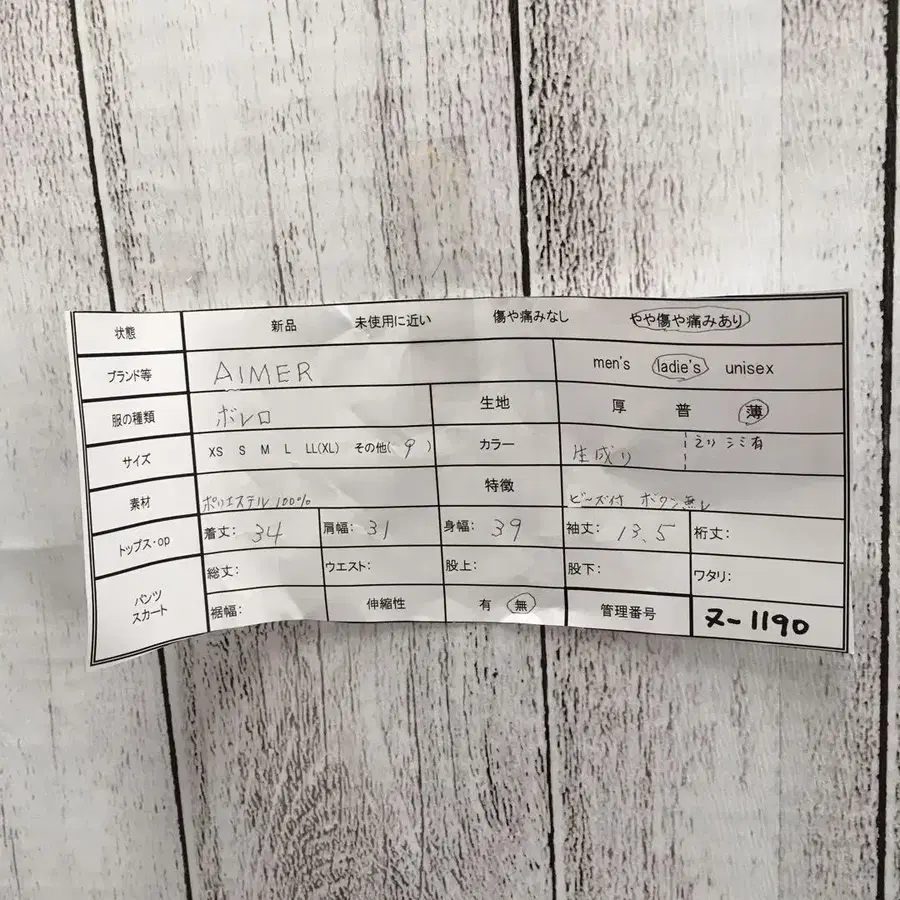 状態 新品 未使用に近い 傷や痛みなし やや傷や痛みあり
ブランド等 AIMER men's ladie's unisex
服の種類 ボレロ 生地 厚 普 薄
サイズ XS S M L LL(XL) その他( 9 ) カラー 生成り えり シミ有
素材 ポリエステル100% 特徴 ビーズ付 ボタン無し
トップス・op 着丈: 34 肩幅: 31 身幅: 39 袖丈: 13.5 裄丈:
パンツ スカート 総丈: ウエスト: 股上: 股下: ワタリ:
裾幅: 伸縮性 有 無 管理番号 ヌ-1190